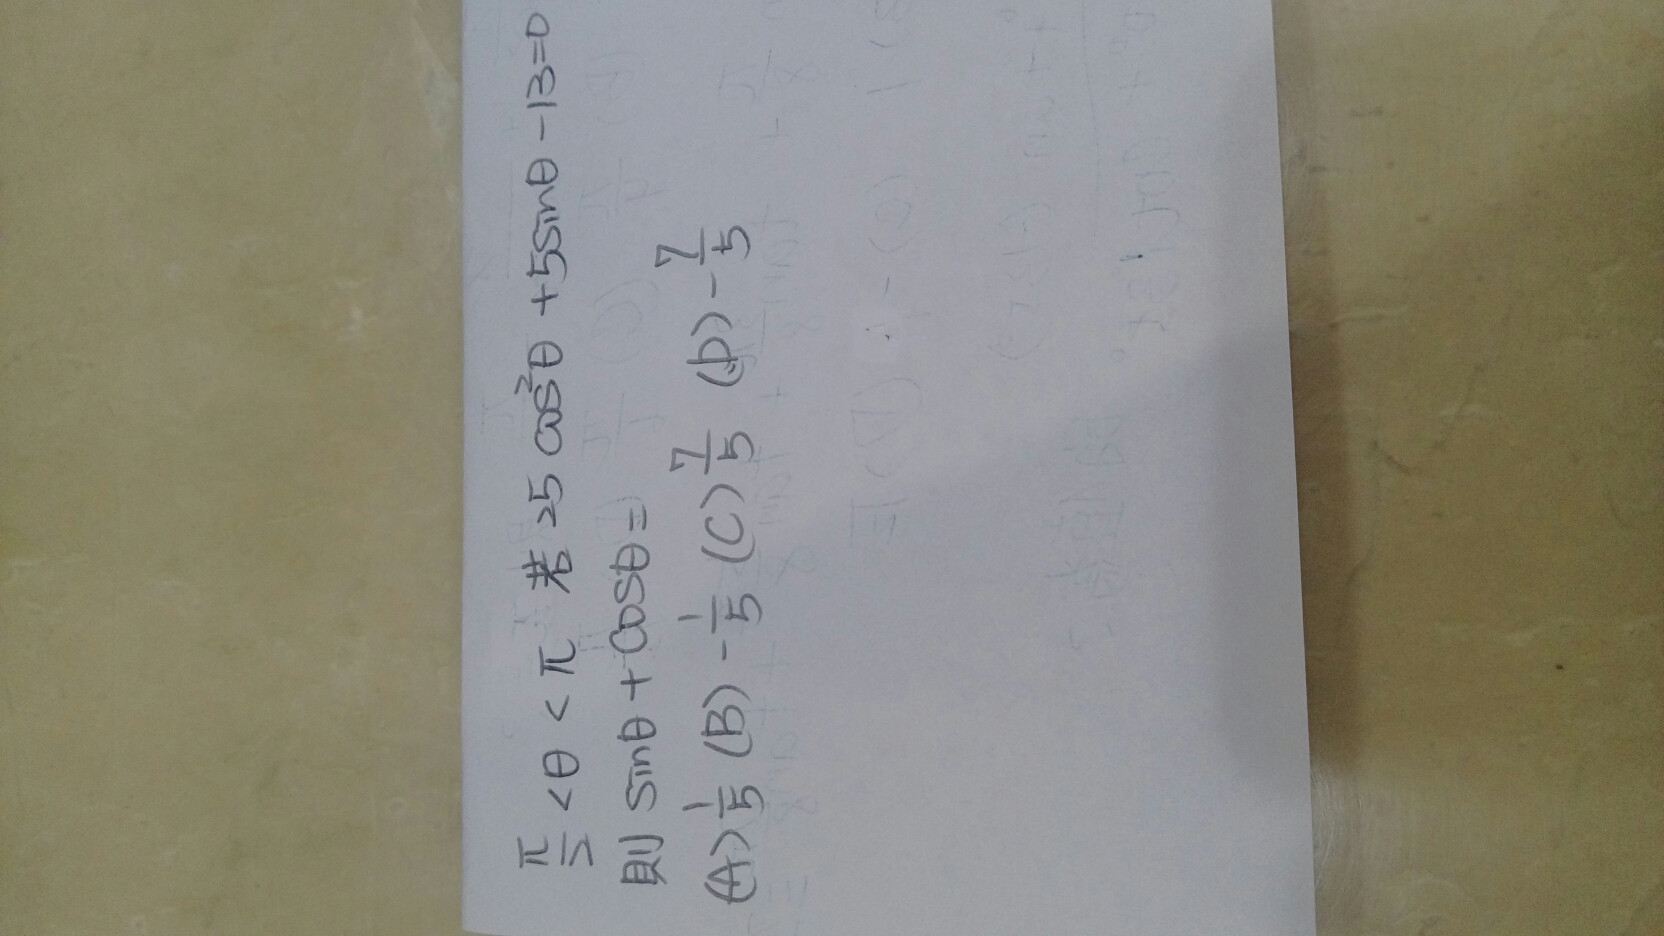 π/2 < θ < π 若 25 cos²θ + 5sinθ - 13 = 0
則 sinθ + cosθ =
(A) 1/5 (B) - 1/5 (C) 7/5 (D) - 7/5